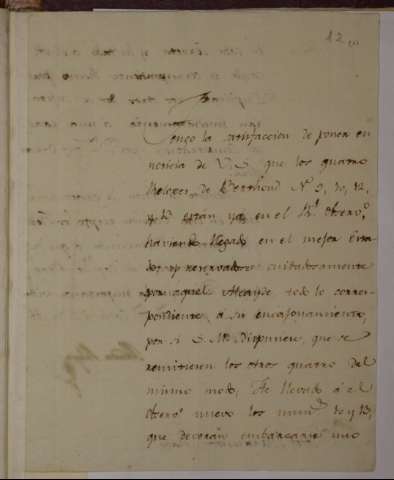 12
Tengo la satisfaccion de poner en
noticia de V.S. que los quatro
Reloges de Berthoud Nº 9, 10, 12,
y 13 estan ya en el Rl. Observo.
haviendo llegado en el mejor esta-
do, y reservado cuidadosamente
por aquel Alcayde todo lo corres-
pondiente á su encajonamiento,
por si S. M. dispusiere, que se
remitiesen los otros quatro del
mismo modo. He llevado á el
Observo. nuevo los num.s 10 y 13,
que deveran embarcarse uno